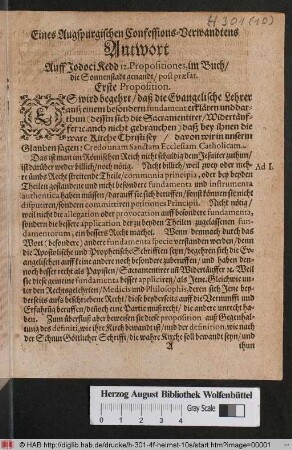 H 301 (10)
Eines Augspurgischen Confessions-Verwandtens
Antwort
Auff Jodoci Kedd 12. Propositiones, im Buch/
die Sonnenstadt genandt/ post præfat.
Erste Proposition.
ES wird begehrt/ daß die Evangelische Lehrer
auß einem besondern fundament erklären und dar-
thun (dessen sich die Sacramentirer/ Widertäuf-
fer ꝛc. auch nicht gebrauchen) daß bey ihnen die
ware Kirche Christi sey/ davon wir in unserm
Glauben sagen: Credo unam Sanctam Ecclesiam Catholicam.
Das ist man im Römischen Reich nicht schuldig dem Jesuiter zuthun/
ist darüber weder billich/ noch nötig. Nicht billich/ weil zwey oder meh-
Ad I.
re umbs Recht streitende Theile/ communia principia, oder bey beyden
Theilen gestandene und nicht besondere fundamenta und instrumenta
authentica haben müssen/ darauff sie sich beruffen/ sonst können sie nicht
disputiren/ sondern committiren petitionem Principii. Nicht nötig/
weil nicht die allegation oder provocation auff besondere fundamenta,
sondern die bessere application der zu beyden Theilen zugelassenen fun-
damentorum, ein bessers Recht machet. Wenn demnach durch das
Wort (besondere) andere fundamenta specie verstanden werden/ denn
die Apostolische und Prophetische Schrifften seyn/ begehren sich die Ev-
angelischen auff keine andere noch besondere zuberuffen/ und haben den-
noch besser recht als Papisten/ Sacramentirer und Widertäuffer ꝛc. Weil
sie diese gemeine fundamenta besser appliciren/ als Jene. Gleich wie un-
ter den Rechtsgelehrten/ Medicis und Philosophis, deren sich Jene bey-
derseits auffs beschriebene Recht/ diese beyderseits auff die Vernunfft und
Erfahrung beruffen/ dennoch eine Partie muß recht/ die andere unrecht ha-
ben. Zum überfluß aber beweisen sie diese propositiones auß Gegenhal-
tung des definiti, wie ihre Kirch bewandt ist/ und der definition, wie nach
der Schnur Göttlicher Schrifft, die wahre Kirche soll bewandt seyn/ und
A
thun
Herzog August Bibliothek Wolfenbüttel
Gray Scale
© HAB http://diglib.hab.de/drucke/h-301-4f-helmst-10s/start.htm?image=00001